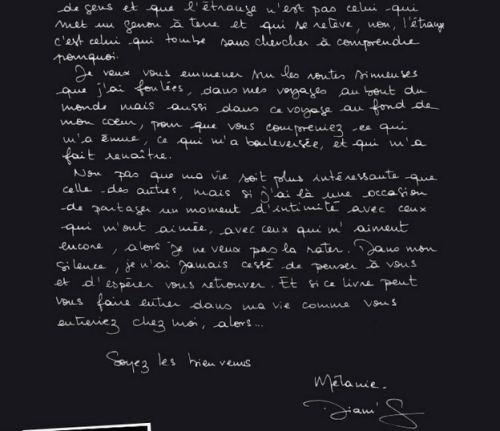 de gens et que l'étrange n'est pas celui qui
met un genou à terre et qui se relève, non, l'étrange
c'est celui qui tombe sans chercher à comprendre
pourquoi.
Je veux vous emmener sur les routes sinueuses
que j'ai foulées, dans mes voyages au bout du
monde mais aussi dans ce voyage au fond de
mon cœur, pour que vous compreniez ce qui
m'a émue, ce qui m'a bouleversée, et qui m'a
fait renaître.
Non pas que ma vie soit plus intéressante que
celle des autres, mais si j'ai là une occasion
de partager un moment d'intimité avec ceux
qui m'ont aimée, avec ceux qui m'aiment
encore, alors je ne veux pas la rater. Dans mon
silence, je n'ai jamais cessé de penser à vous
et d'espérer vous retrouver. Et si ce livre peut
vous faire entrer dans ma vie comme vous
entreriez chez moi, alors...
Soyez les bienvenus
Mélanie.